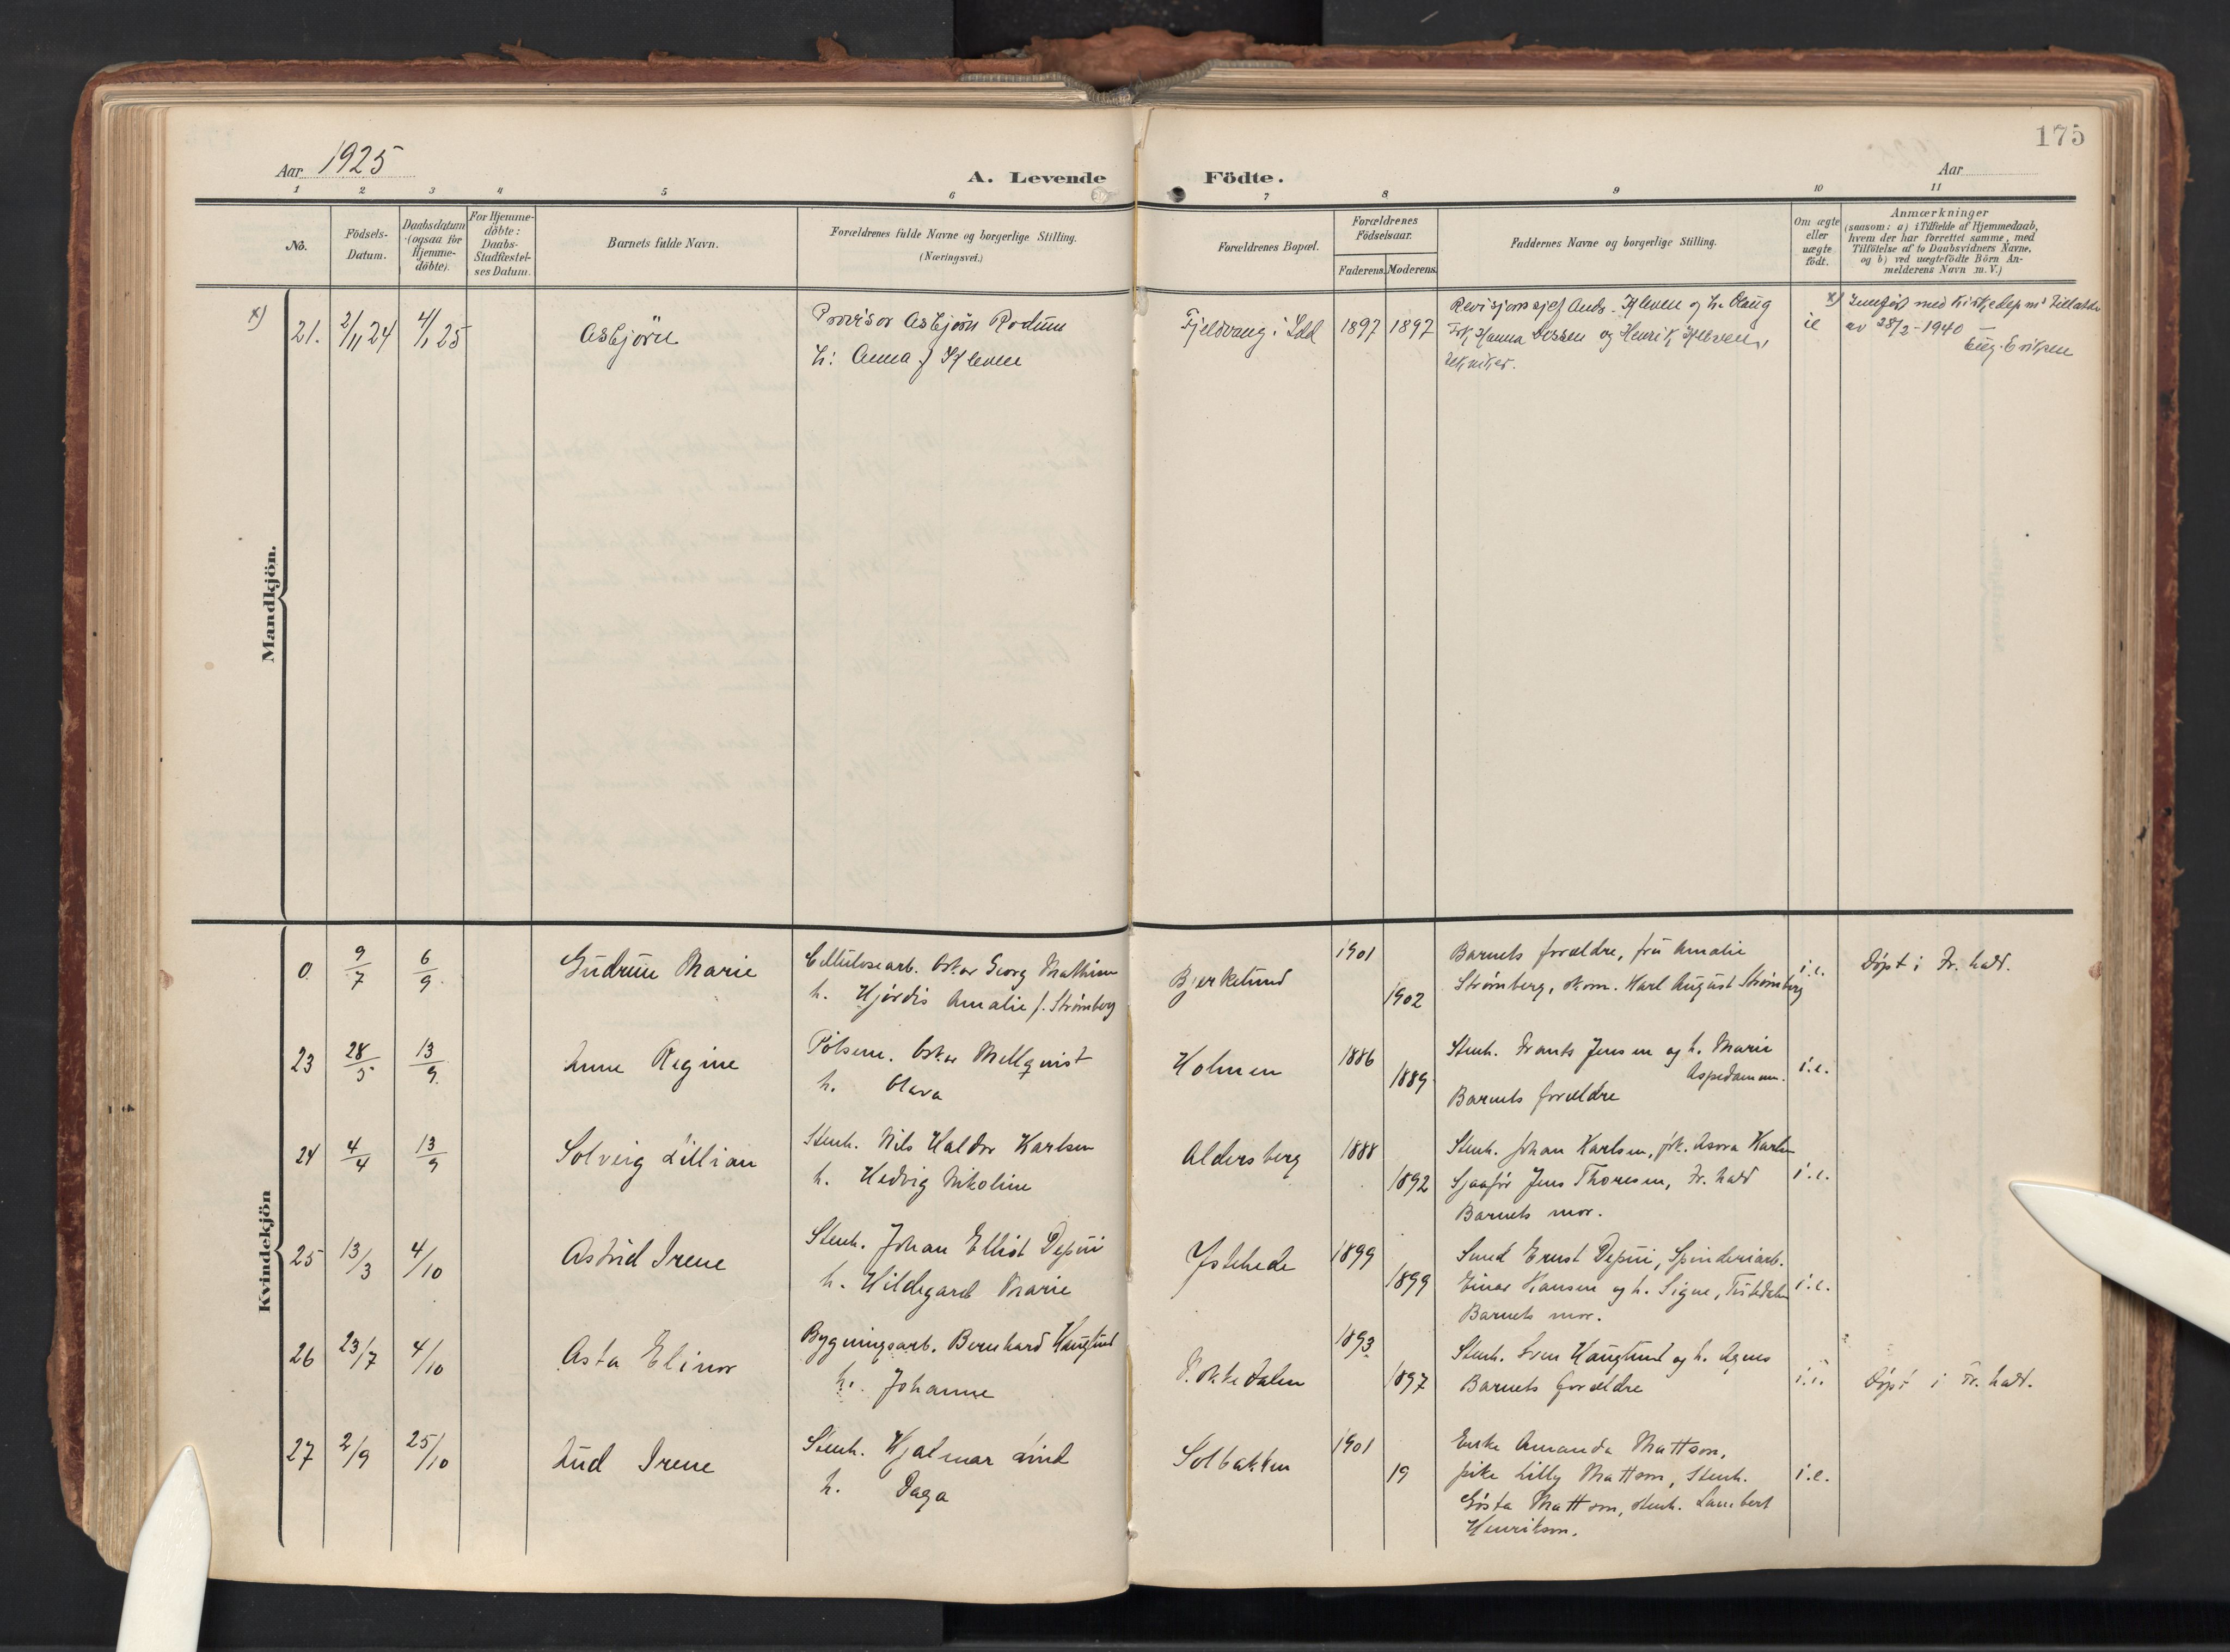 175
Aar 1925
A. Levende Födte.
Aar
1 2 3 4 5 6 7 8 9 10 11
No.
Födsels-
Datum.
Daabsdatum
(ogsaa for
Hjemme-
döbte).
For Hjemme-
döbte:
Daabs-
Stadfæstel-
ses Datum.
Barnets fulde Navn.
Forældrenes fulde Navne og borgerlige Stilling.
(Næringsvei.)
Forældrenes Bopæl.
Forældrenes
Födselsaar.
Faderens. Moderens.
Faddernes Navne og borgerlige Stilling.
Om ægte
eller
uægte
födt.
Anmærkninger
(saasom: a) i Tilfælde af Hjemmedaab,
hvem der har forrettet samme, med
Tilföielse af to Daabsvidners Navne,
og b) ved uægtefödte Börn An-
melderens Navn m. V.)
Mandkjön.
x) 21. 2/11 24 4/1 25 Asbjörn
Provisor Asbjörn Rodum
h: Anna f. Kleven
Fjeldvang i Idd 1897 1897
Revisjonssjef Ands. Kleven og h. Olaug
Frk. Hanna og Henrik Kleven,
tekniker.
x) Innført med Kirkedep ms Tillatelse
av 28/2-1940
Eug. Eriksen
Kvindekjön
0 9/7 6/9 Gudrun Marie
Cellulosearb. Oskar Georg Mathisen
h. Hjördis Amalie f. Strömberg
Bjerkelund 1901 1902
Barnets forældre, fru Amalie
Strömberg, skom. Karl August Strömberg
i.e. Döpt i Fr. hald.
23 28/5 13/9 Anne Regine
Pölsem. Oskar Mellqvist
h. Olava
Holmen 1886 1889
Stenh. Frants Jensen og h. Marie
Aspedammen.
Barnets forældre
i.e.
24 4/4 13/9 Solveig Lillian
Stenh. Nils Haldor Karlsen
h. Hedvig Nikoline
Aldersberg 1888 1892
Stenh. Johan Karlsen, frk. Asora Karlsen
Sjaaför Jens Thoresen, Fr. hald
Barnets mor.
i.e.
25 13/3 4/10 Astrid Irene
Stenh. Johan Elliot Depui
h. Hildegard Marie
Ystehede 1899 1899
Smed Ernst Depui, Spinderiarb.
Einar Hansen og h. Signe, Tistedalen
Barnets mor.
i.e.
26 23/7 4/10 Asta Elinor
Bygningsarb. Bernhard Hauglund
h. Johanne
1893 1897
Stenh. Sven Hauglund og h. Agnes
Barnets forældre
Döpt i Fr. hald.
27 2/9 25/10 Aud Irene
Stenh. Hjalmar Lind
h. Daga
Solbakken 1901 19
Enke Amanda Mattson,
pike Lilly Mattson, Stenh.
Gösta Mattson, stenh. Lambert
Henrikson.
i.e.